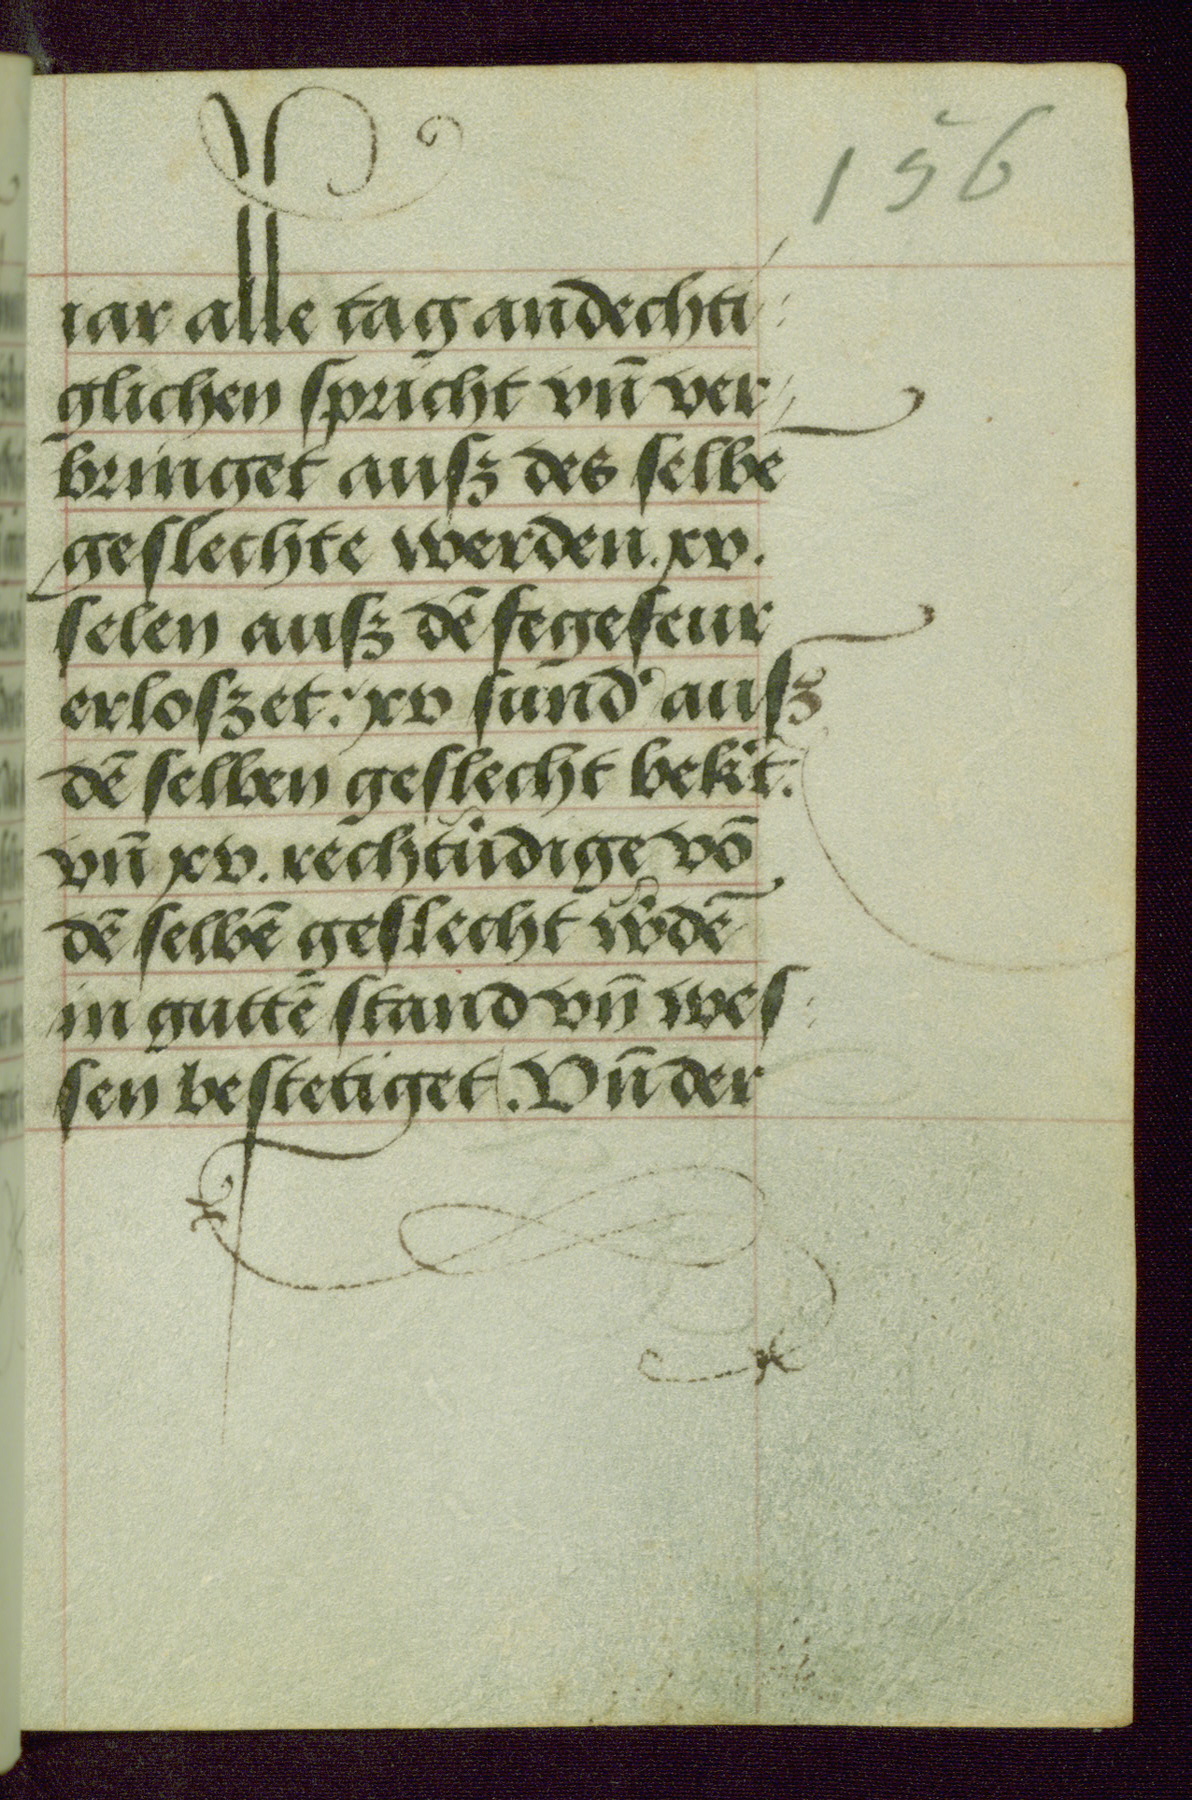 156
iar alle tag andechti-
glichen spricht vn̄ ver-
bringet ausz des selbē
geslechte werden .xv.
selen ausz dē fegefeur
erloszet: xv sund' ausz
dē selben geslecht bek't:
vn̄ xv. rechtu᷑dige vō
dē selbē geslecht w᷑dē
in guttē stand vn̄ wes-
sen bestetiget. Vn̄ der